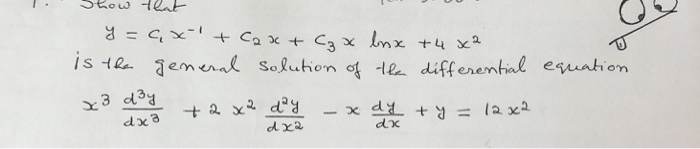 1. Show that
y = c₁ x⁻¹ + c₂ x + c₃ x lnx + 4 x²
is the general solution of the differential equation
x³ d³y/dx³ + 2 x² d²y/dx² - x dy/dx + y = 12 x²